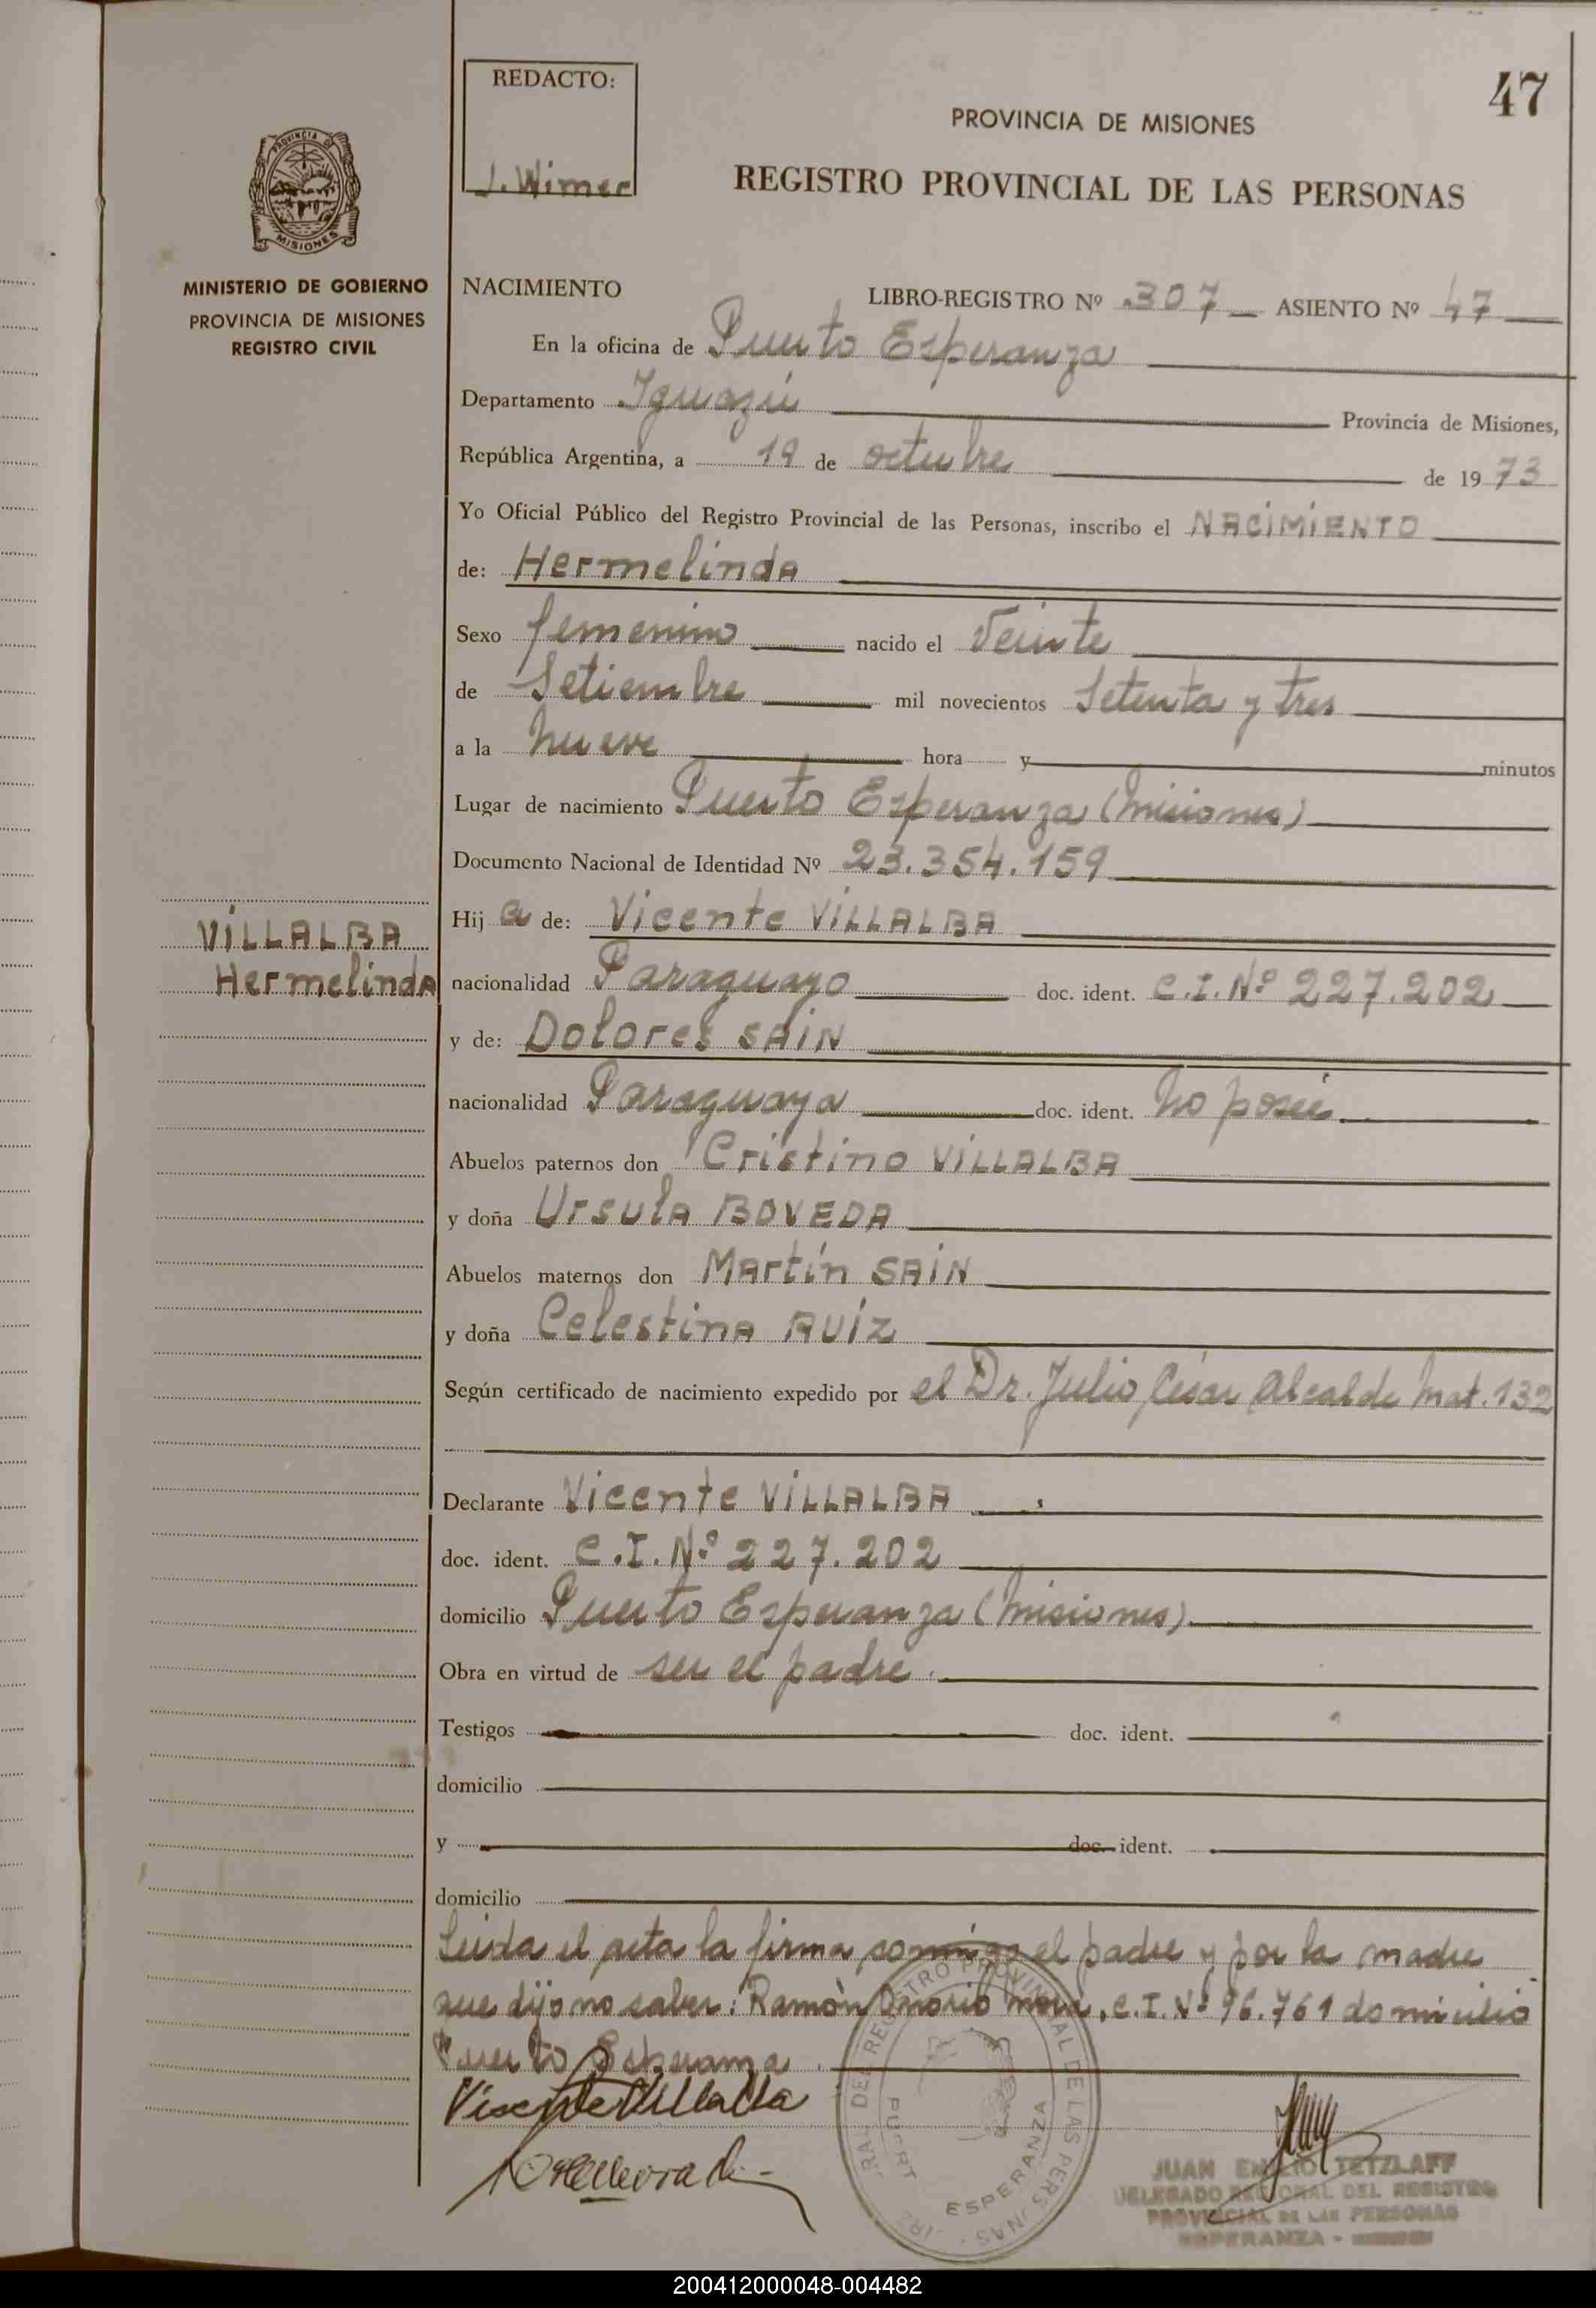 47
REDACTO:
J. Wimer
PROVINCIA DE MISIONES
REGISTRO PROVINCIAL DE LAS PERSONAS
PROVINCIA DE
MISIONES
MINISTERIO DE GOBIERNO
PROVINCIA DE MISIONES
REGISTRO CIVIL
NACIMIENTO LIBRO-REGISTRO Nº 307 ASIENTO Nº 47
En la oficina de Puerto Esperanza
Departamento Iguazú Provincia de Misiones,
República Argentina, a 19 de octubre de 1973
Yo Oficial Público del Registro Provincial de las Personas, inscribo el NACIMIENTO
de: Hermelinda
Sexo femenino nacido el Veinte
de Setiembre mil novecientos Setenta y tres
a la nueve hora y minutos
Lugar de nacimiento Puerto Esperanza (Misiones)
Documento Nacional de Identidad Nº 23.354.159
VILLALBA
Hermelinda
Hija de: Vicente VILLALBA
nacionalidad Paraguayo doc. ident. C.I. Nº 227.202
y de: Dolores SAIN
nacionalidad Paraguaya doc. ident. no posee
Abuelos paternos don Cristino VILLALBA
y doña Ursula BOVEDA
Abuelos maternos don Martín SAIN
y doña Celestina RUIZ
Según certificado de nacimiento expedido por el Dr. Julio César Alcalde Mat. 132
Declarante Vicente VILLALBA
doc. ident. C.I. Nº 227.202
domicilio Puerto Esperanza (Misiones)
Obra en virtud de ser el padre.
Testigos doc. ident.
domicilio
y doc. ident.
domicilio
Leida el acta la firma conmigo el padre y por la madre
que dijo no saber: Ramón Onorio Mora, C.I. Nº 96.761 domicilio
Puerto Esperanza.
Vicente Villalba
JUAN EMILIO TETZLAFF
DELEGADO REGIONAL DEL REGISTRO
PROVINCIAL DE LAS PERSONAS
ESPERANZA -
200412000048-004482